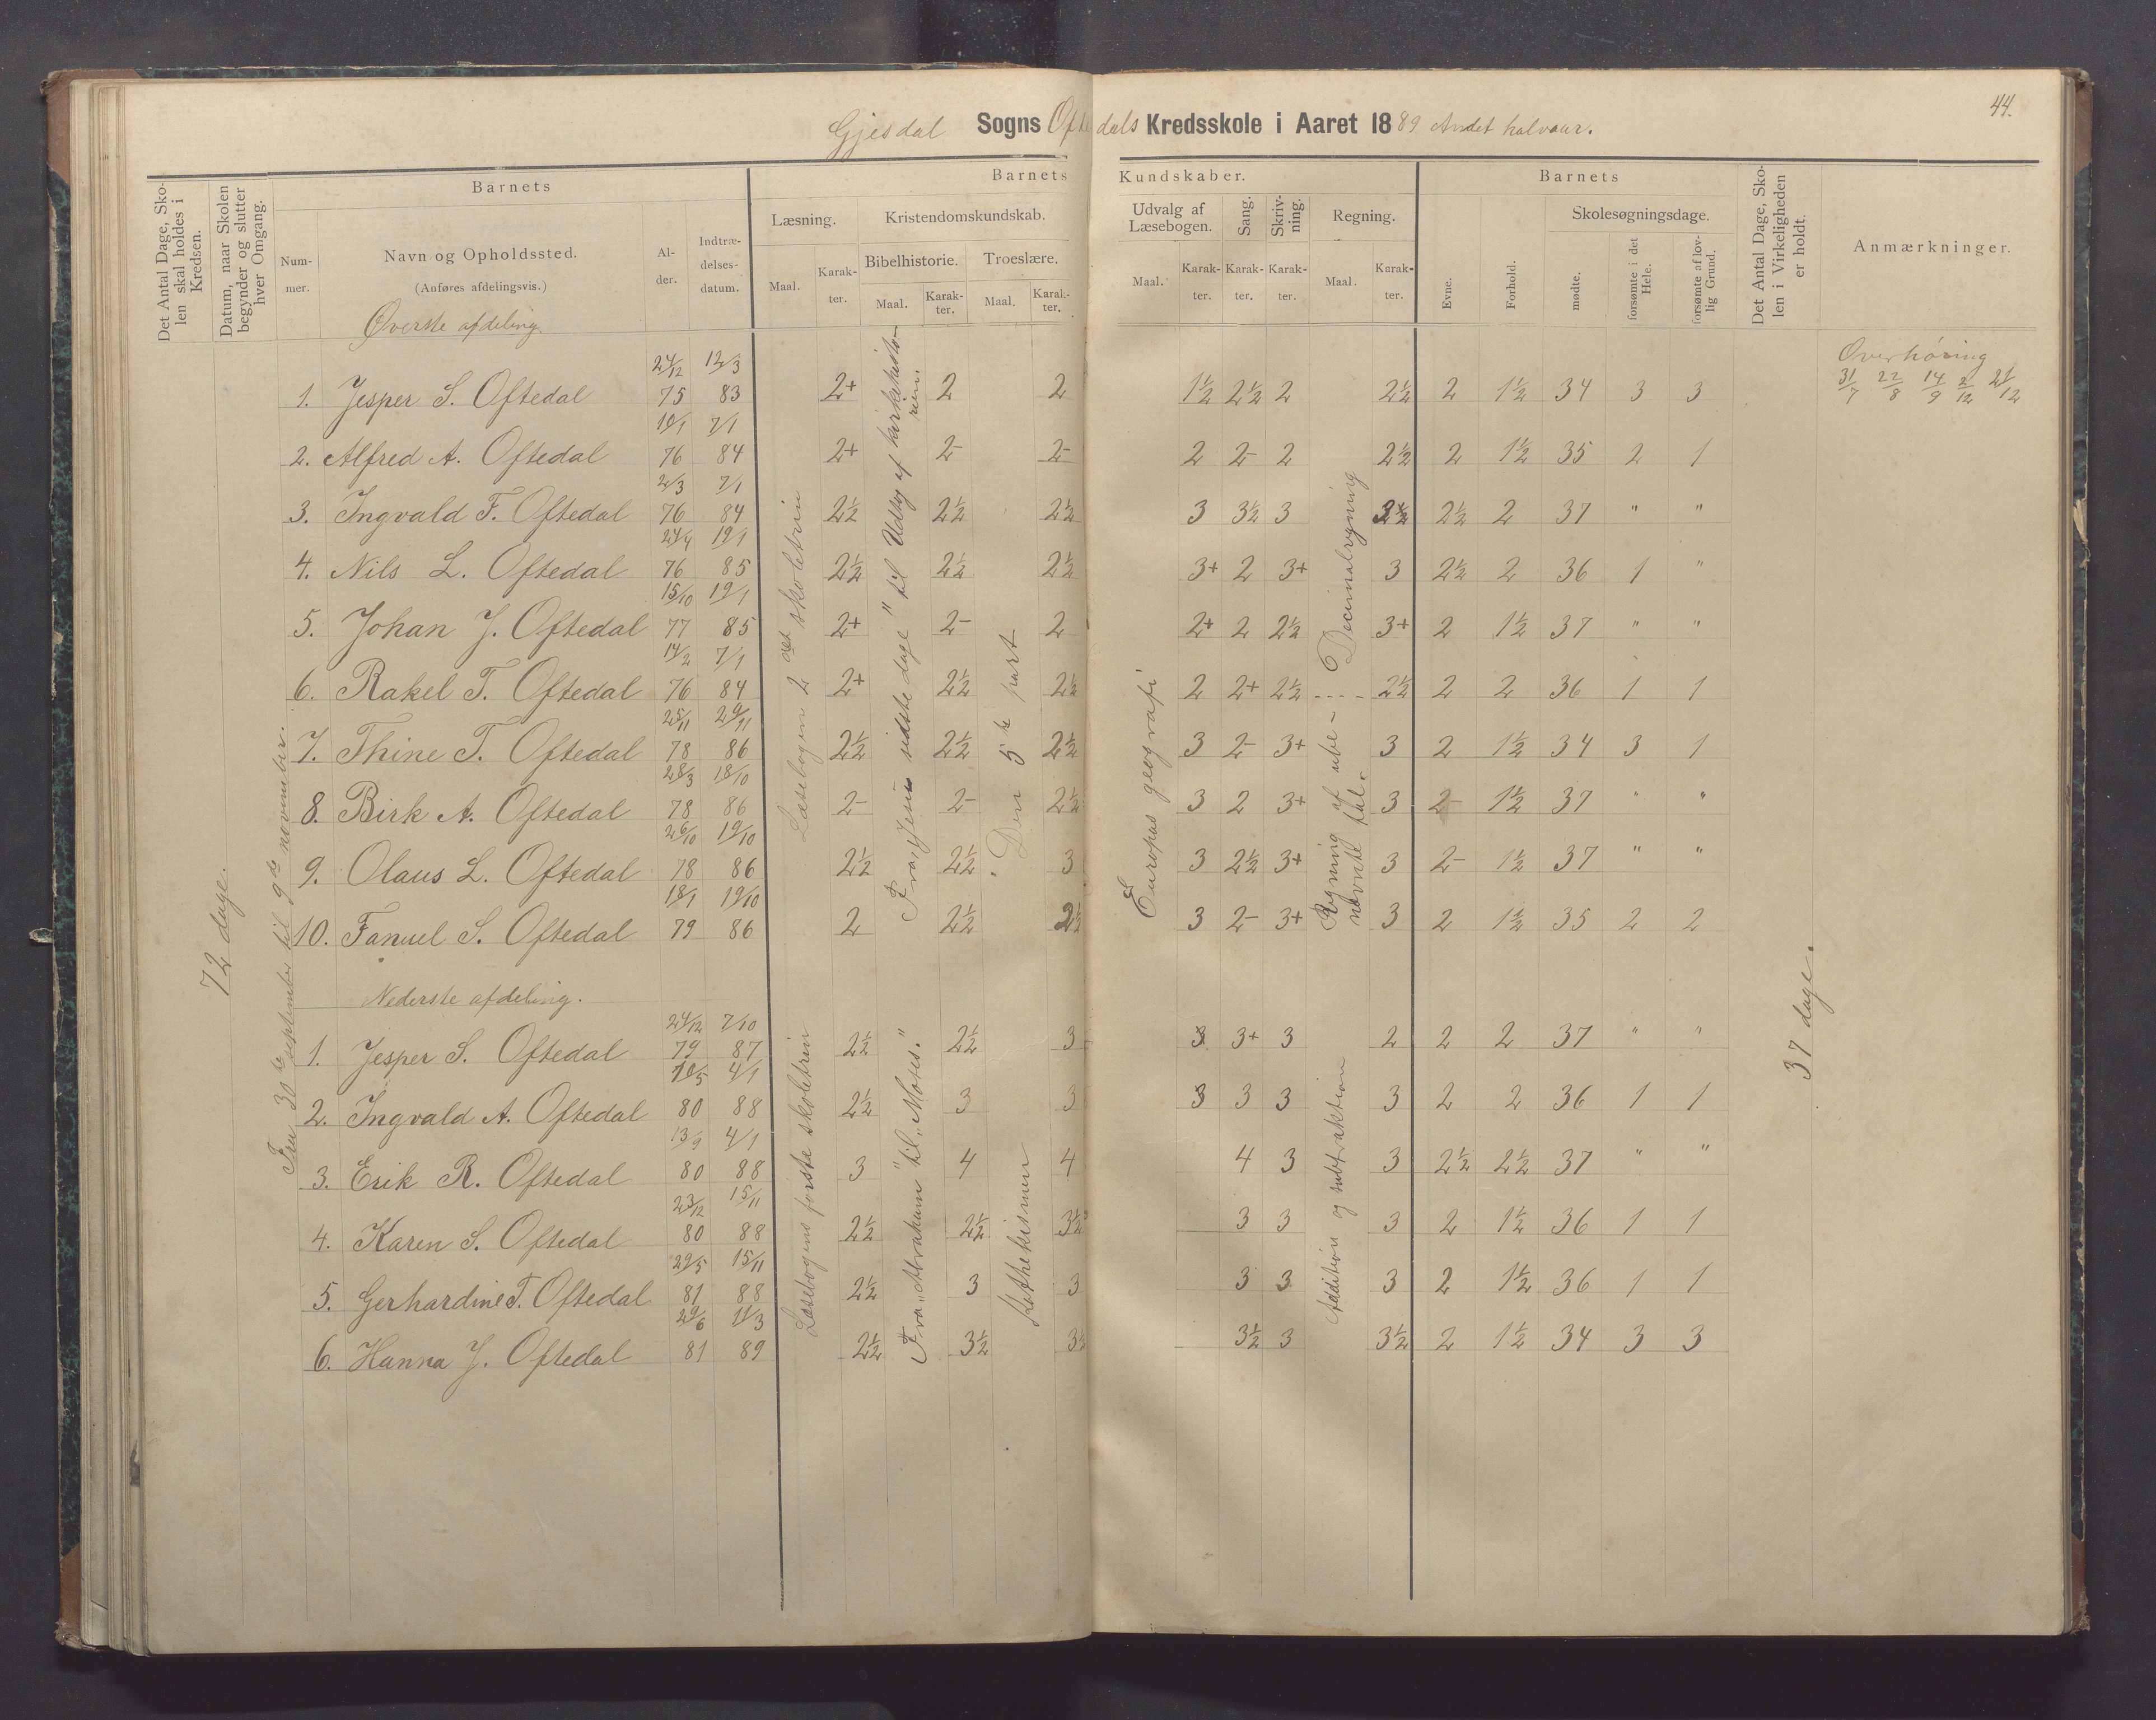 44.
Gjesdal Sogns Oftedals Kredsskole i Aaret 1889 Andet halvaar.
Det Antal Dage, Skolen skal holdes i Kredsen.
Datum, naar Skolen begynder og slutter hver Omgang.
Barnets
Nummer.
Navn og Opholdssted.
(Anføres afdelingsvis.)
Alder.
Indtrædelsesdatum.
Barnets Kundskaber.
Læsning.
Maal.
Karakter.
Kristendomskundskab.
Bibelhistorie.
Maal.
Karakter.
Troeslære.
Maal.
Karakter.
Udvalg af Læsebogen.
Maal.
Karakter.
Sang.
Karakter.
Skrivning.
Karakter.
Regning.
Maal.
Karakter.
Barnets
Evne.
Forhold.
Skolesøgningsdage.
mødte.
forsømte i det Hele.
forsømte af lovlig Grund.
Det Antal Dage, Skolen i Virkeligheden er holdt.
Anmærkninger.
72 dage.
Fra 30te september til 9de november.
Øverste afdeling
Læsebogen 2det skoletrin
Fra „Jesu sidste dage" til Udtog af kirkehistorien.
Den 5te part
Europas geografi
Regning af ubenævnte tal. Decimalregning
37 dage.
Overhøring
31/7 22/8 14/9 2/12 21/12
1. Jesper S. Oftedal 24/12 75 12/3 83 2+ 2 2 1½ 2½ 2 2½ 2 1½ 34 3 3
2. Alfred A. Oftedal 10/1 76 7/1 84 2+ 2- 2- 2 2- 2 2½ 2 1½ 35 2 1
3. Ingvald F. Oftedal 2/3 76 7/1 84 2½ 2½ 2½ 3 3½ 3 2½ 2 37 " "
4. Nils L. Oftedal 24/4 76 19/1 85 2½ 2½ 2½ 3+ 2 3+ 3 2½ 2 36 1 "
5. Johan J. Oftedal 15/10 77 19/1 85 2+ 2- 2 2+ 2 2½ 3+ 2 1½ 37 " "
6. Rakel T. Oftedal 14/2 76 7/1 84 2+ 2½ 2½ 2 2+ 2½ 2½ 2 2 36 1 1
7. Thine T. Oftedal 25/11 78 29/11 86 2½ 2½ 2½ 3 2- 3+ 3 2 1½ 34 3 1
8. Birk A. Oftedal 28/3 78 18/10 86 2- 2- 2½ 3 2 3+ 3 2- 1½ 37 " "
9. Olaus L. Oftedal 26/10 78 19/10 86 2½ 2½ 3 3 2½ 3+ 3 2- 1½ 37 " "
10. Fanuel S. Oftedal 18/1 79 19/10 86 2 2½ 2½ 3 2- 3+ 3 2 1½ 35 2 2
Nederste afdeling.
Læsebogens første skoletrin
Fra „Abraham" til „Moses."
Kathekismen
Addition og subtraktion
1. Jesper S. Oftedal 24/12 79 7/10 87 2½ 2½ 3 3 3+ 3 2 2 2 37 " "
2. Ingvald A. Oftedal 10/5 80 4/1 88 2½ 3 3 3 3 3 3 2 2 36 1 1
3. Erik R. Oftedal 13/9 80 4/1 88 3 4 4 4 3 3 2½ 2½ 37 " "
4. Karen S. Oftedal 23/12 80 15/11 88 2½ 2½ 3½ 3 3 3 2 1½ 36 1 1
5. Gerhardine T. Oftedal 29/5 81 15/11 88 2½ 3 3 3 3 3 2 1½ 36 1 1
6. Hanna J. Oftedal 29/6 81 11/3 89 2½ 3½ 3½ 3½ 3 3½ 2 1½ 34 3 3